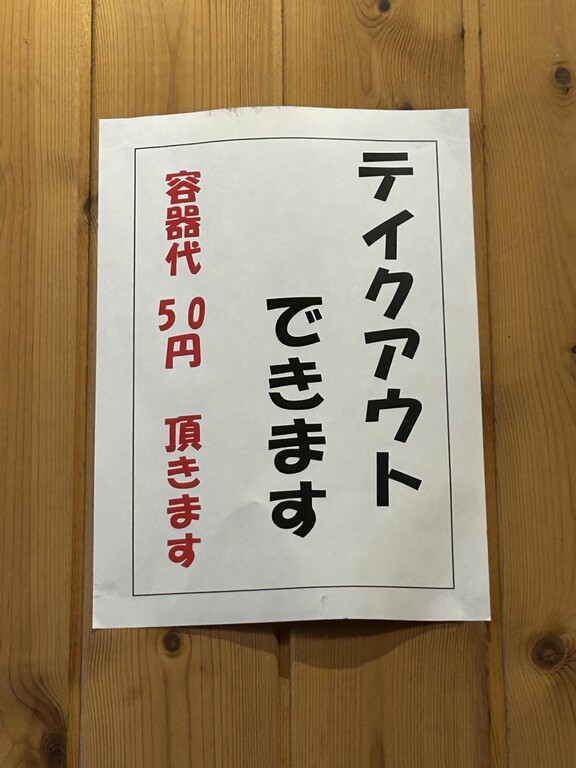 テイクアウト
できます
容器代 50円 頂きます